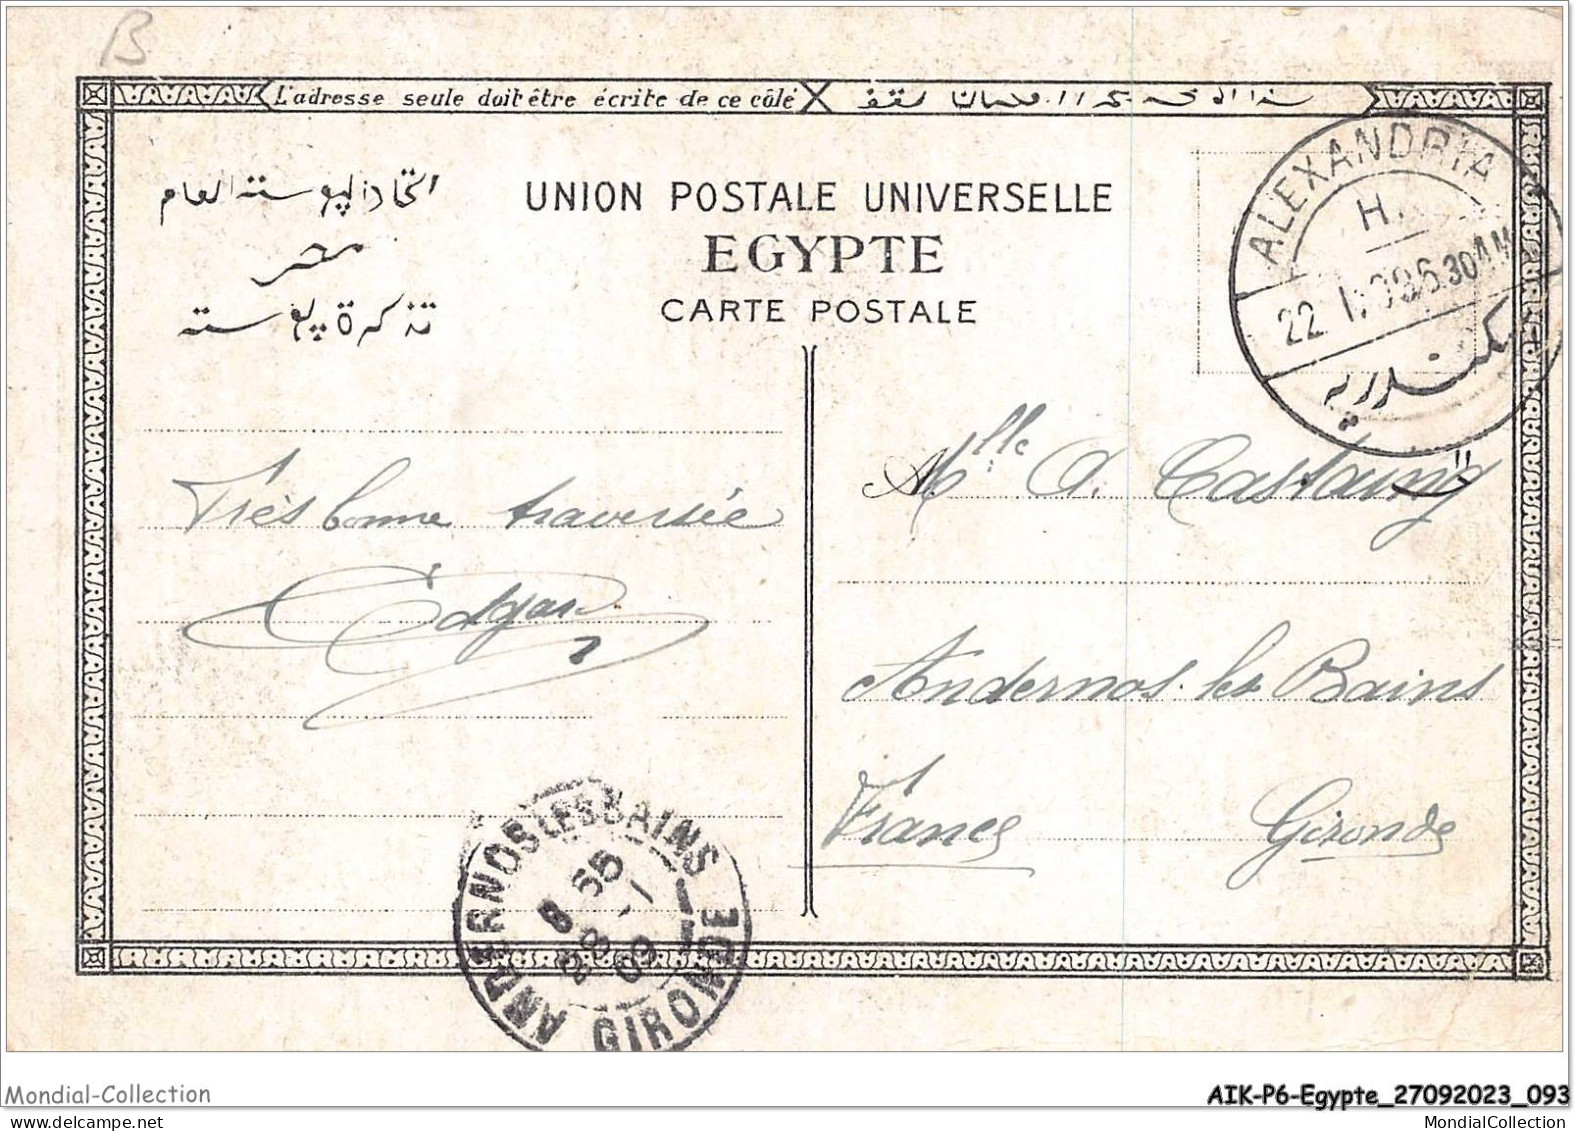 B
L'adresse seule doit être écrite de ce côté
اتحاد البوسته العام
مصر
تذكرة بوسته
UNION POSTALE UNIVERSELLE
EGYPTE
CARTE POSTALE
ALEXANDRIA
H.
22 I 30 AM
Très bonne traversée
Edgar
Mlle A. Castaing
Andernos les Bains
France Gironde
ANDERNOS LES BAINS
8 55
28 -1
09
GIRONDE
Mondial-Collection
AIK-P6-Egypte_27092023_093
MondialCollection